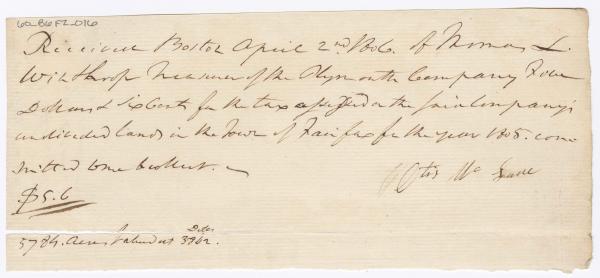 60_B6F2_016
Received Boston April 2nd 1806. of Thomas L.
Winthrop Treasurer of the Plymouth Company
Dollars & six Cents for the tax assessed on the said Company's
undivided lands in the Town of Fairfax for the year 1805. com
mitted to me to collect.
Otis
$5.6
5784. acres valued at Dolls 3862.